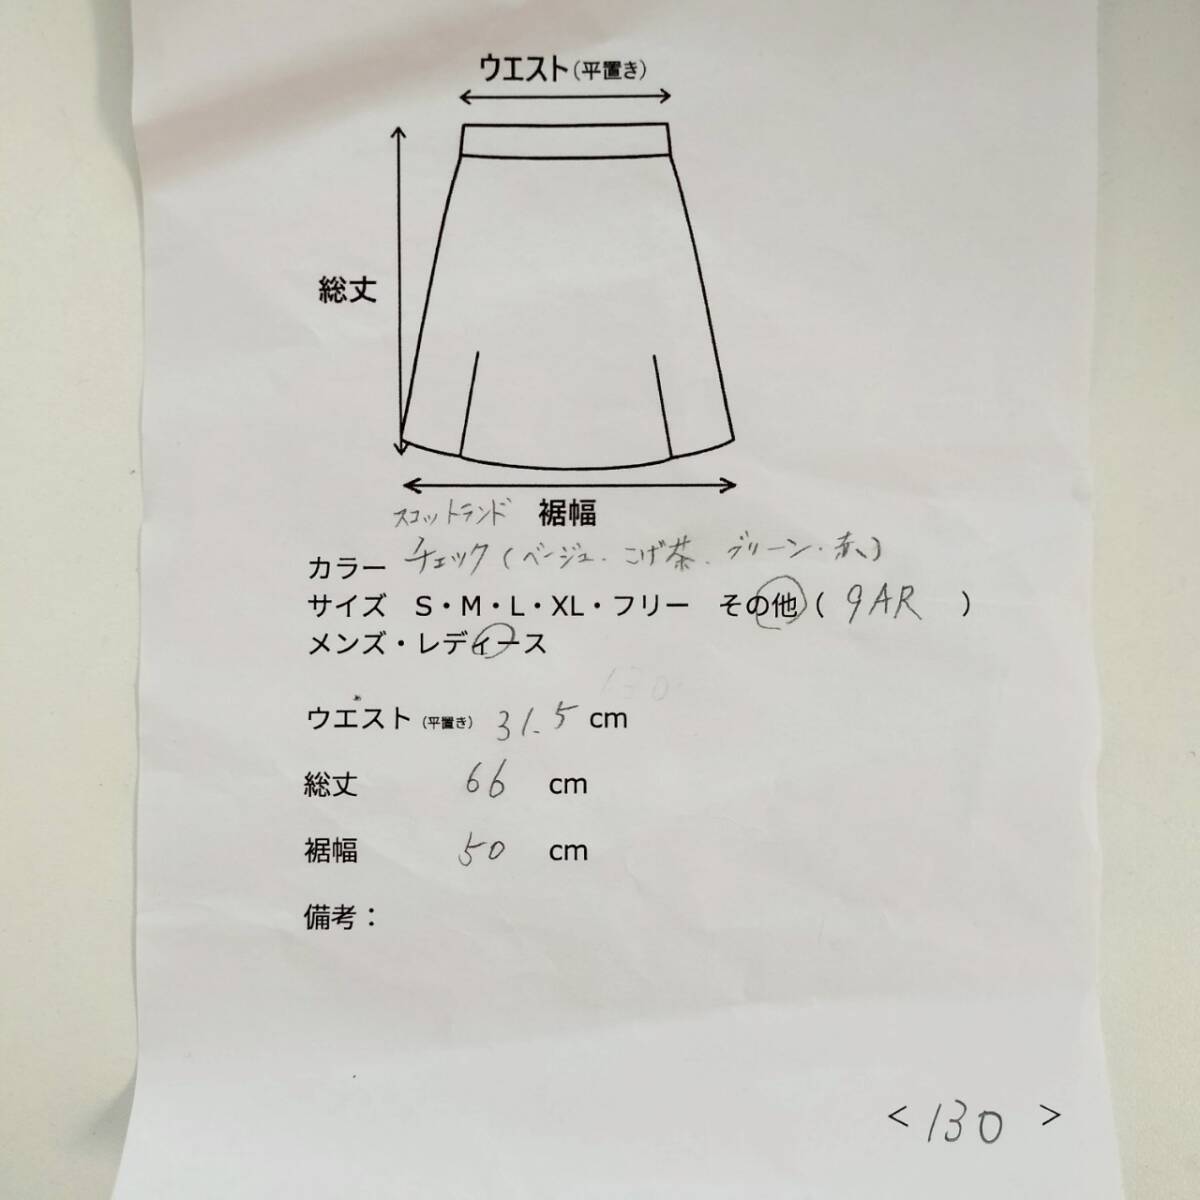 ウエスト(平置き)
総丈
スコットランド 裾幅
カラー チェック(ベージュ・こげ茶・グリーン・赤)
サイズ S・M・L・XL・フリー その他( 9AR )
メンズ・レディース
130
ウエスト(平置き) 31.5 cm
総丈 66 cm
裾幅 50 cm
備考：
< 130 >